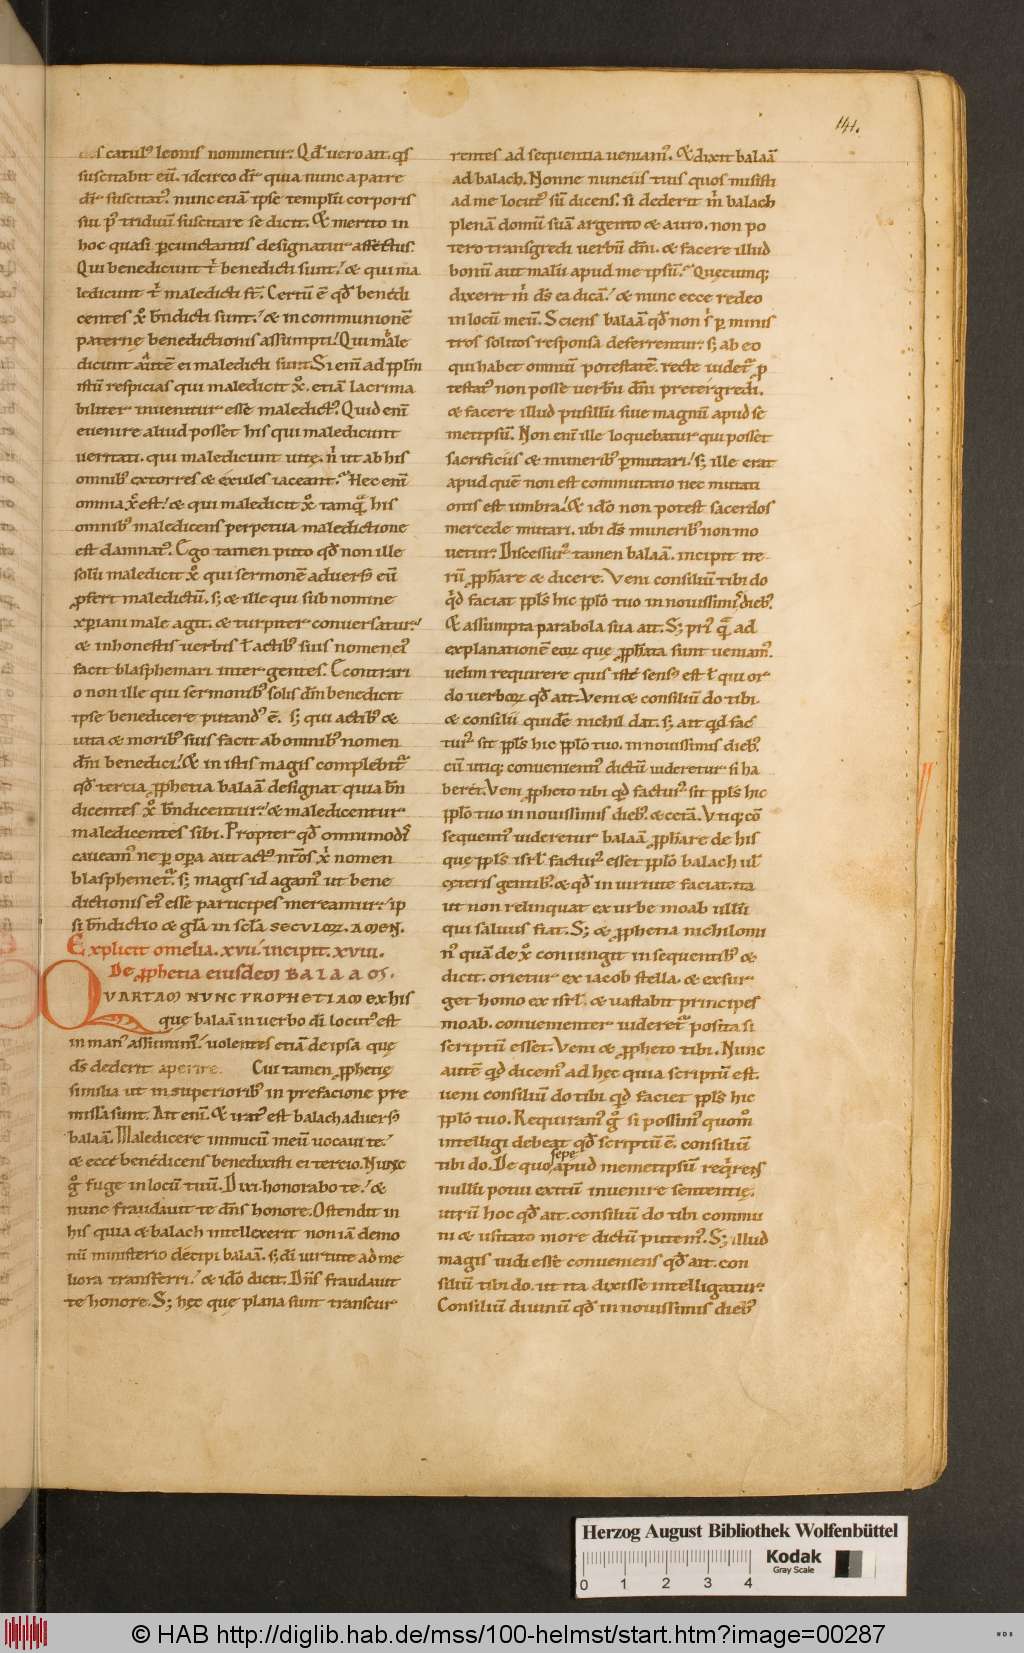 141.
catul⁹ leonis nominetur. Qd̄ uero ait. q̄s
suscitabit eū. idcirco dr̄ quia nunc a patre
dr̄ suscitat⁹. nunc etiā ipse templū corporis
sui p⁹ triduū suscitare se dicit. & merito in
hoc quasi ꝑcunctantis designatur affectus.
Qui benedicunt t̄ benedicti sunt. & qui ma
ledicunt t̄ maledicti st̄. Certū ē qd̄ benedi
centes xp̄o b̄ndicti sunt. & in communionē
paternę benedictionis assumpti. Qui male
dicunt autē ei maledicti sunt. Si enī ad ppl̄m
istū respicias qui maledicit xp̄o. etiā lacrima
biliter inuenitur esse maledict⁹. Quid enī
euenire aliud posset his qui maledicunt
ueritati. qui maledicunt uitę. n̄ ut ab his
omnib⁹ extorres & exules iaceant. Hec enī
omnia xp̄c est. & qui maledicit xp̄o tamquā his
omnib⁹ maledicens perpetua maledictione
est damnat⁹. Ego tamen puto qd̄ non ille
solū maledicit xp̄o qui sermonē aduers⁹ eū
ꝓfert maledictū. s; & ille qui sub nomine
xp̄iani male agit. & turpiter conuersatur.
& inhonestis uerbis ł actib⁹ suis nomen ei⁹
facit blasphemari inter gentes. E contrari
o non ille qui sermonib⁹ solis dm̄ benedicit
ipse benedicere putand⁹ ē. s; qui actib⁹ &
uita & morib⁹ suis facit ab omnib⁹ nomen
dn̄i benedici. & in istis magis complebit᷑
qd̄ tercia ꝓphetia balaā designat quia bn̄
dicentes xp̄o b̄ndicentur. & maledicentur
maledicentes sibi. Propter qd̄ omnimodis
caueam⁹ ne ꝑ opera aut act⁹ nr̄os xp̄i nomen
blasphemet᷑. s; magis id agam⁹ ut bene
dictionis ei⁹ esse participes mereamur. ip
si b̄ndictio & gl̄a in scl̄a SECULOꝜ. AMEN.
Explicit omelia. xvii. incipit. xviii.
De ꝓphetia eiusdem BALAAM.
QUARTAM NUNC PROPHETIAM ex his
que balaā in uerbo dī locut⁹ est
in man⁹ assumim⁹. uolentes etiā de ipsa quę
ds̄ dederit aperire. Cui tamen ꝓphetię
similia ut in superiorib⁹ in prefacione pre
missa sunt. Ait enī. & irat⁹ est balach aduers⁹
balaā. Maledicere inimicū meū uocaui te.
& ecce benedicens benedixisti ei tercio. Nunc
g̊ fuge in locū tuū. Dixi. honorabo te. &
nunc fraudauit te dn̄s honore. Ostendit in
his quia & balach intellexerit non iā demo
nū ministerio decipi balaā. s; dī uirtute ad me
liora transferri. & ido dicit. Dn̄s fraudauit
te honore. S; hęc quę plana sunt transcur
rentes ad sequentia ueniam⁹. & dixit balaā
ad balach. Nonne nuncus tuis quos misisti
ad me locut⁹ sū dicens. si dederit m̄ balach
plenā domū suā argento & auro. non po
tero transgredi uerbū dn̄i. & facere illud
bonū aut malū apud me ipsū. Quęcunq;
dixerit m̄ ds̄ ea dicā. & nunc ecce redeo
in locū meū. Sciens balaā qd̄ non s̄ ꝑ minis
tros solitos responsa deferrentur. s; ab eo
qui habet omniū potestatē. recte uidet᷑ p̄
testat⁹ non posse uerbū dn̄i pretergredi.
& facere illud pusillū siue magnū apud se
metipsū. Non enī ille loquebatur qui posset
sacrificiis & munerib⁹ ꝑmutari. s; ille erat
apud quē non est commutatio nec mutati
onis est umbra. & ido non potest sacerdos
mercede mutari. ubi ds̄ munerib⁹ non mo
uetur. Discessur⁹ tamen balaā. incipit ite
rū ꝓphare & dicere. Veni consiliū tibi do
qd̄ faciat ppl̄s hic ppl̄o tuo in nouissimis dieb⁹.
& assumpta parabola sua ait. S; pri⁹ quā ad
explanationē eoꝝ quę ꝓph̄ata sunt ueniam⁹.
uelim requirere quis iste sens⁹ est ł qui or
do uerboꝝ qd̄ ait. Veni & consiliū do tibi.
& consilii quide nichil dat. s; ait qd̄ fac
tur⁹ sit ppl̄s hic ppl̄o tuo. in nouissimis dieb⁹.
cū utiq; conuenienti⁹ dictū uideretur si ha
beret. Veni ꝓpheto tibi qd̄ factur⁹ sit ppl̄s hic
ppl̄o tuo in nouissimis dieb⁹. & cetā. Vtiq; cō
sequenti⁹ uideretur balaā ꝓphare de his
quę ppl̄s isrl̄ factur⁹ esset ppl̄o balach uł
ceteris gentib⁹. & qd̄ in uirtute faciat. ita
ut non relinquat ex urbe moab ullū
qui saluus fiat. S; & ꝓphetia nichilomi
n⁹ quā de xp̄o coniungit in sequentib⁹ &
dicit. orietur ex iacob stella. & exsur
get homo ex isrl̄. & uastabit principes
moab. conuenienter uideret᷑ posita si
scriptū esset. Veni & ꝓpheto tibi. Nunc
autē qd̄ dicem⁹ ad hęc quia scriptū est.
ueni consiliū do tibi qd̄ faciet ppl̄s hic
ppl̄o tuo. Requiram⁹ g̊ si possim⁹ quom̊
intelligi debeat qd̄ scriptū ē. consiliū
tibi do. De quo sepe apud memetipsū reqrens
nullū potui exitū inuenire sententię.
utrū hoc qd̄ ait. consiliū do tibi commu
ni & usitato more dictū putem⁹. S; illud
magis uidi esse conueniens qd̄ ait. con
siliū tibi do. ut ita dixisse intelligatur.
Consiliū diuinū qd̄ in nouissimis dieb⁹
Herzog August Bibliothek Wolfenbüttel
Kodak
Gray Scale
0 1 2 3 4
© HAB http://diglib.hab.de/mss/100-helmst/start.htm?image=00287